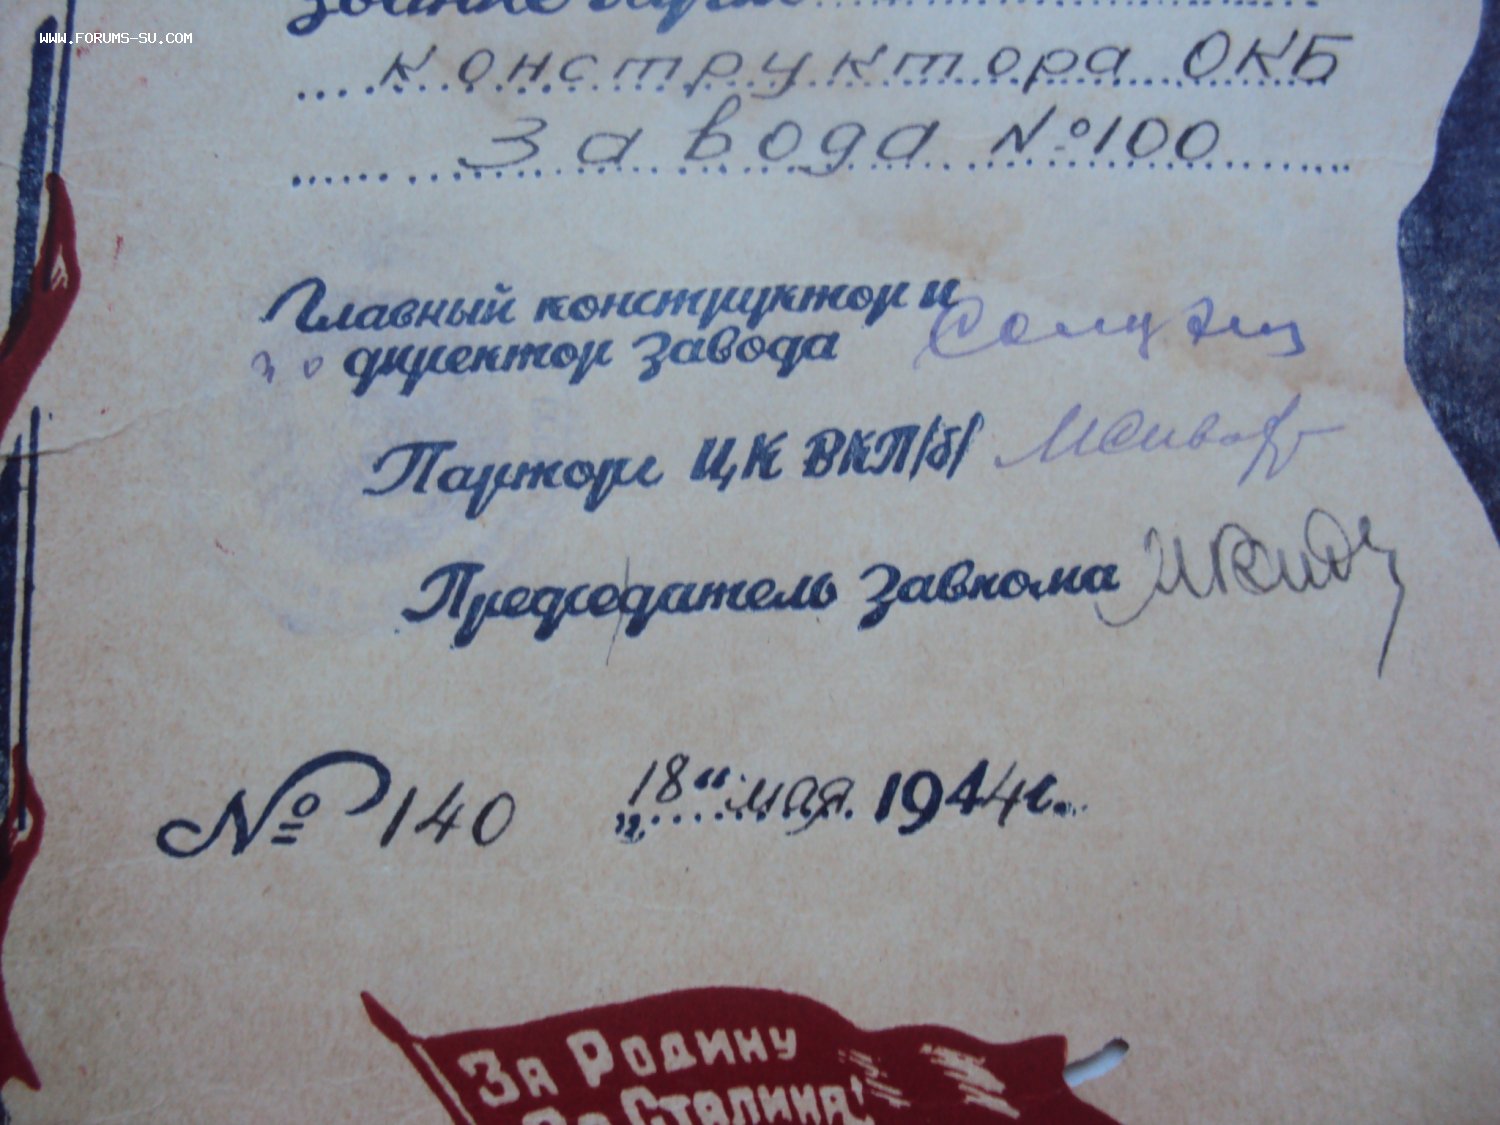 WWW.FORUMS-SU.COM
звание
конструктора ОКБ
завода № 100
Главный конструктор и
директор завода
Парторг ЦК ВКП/б/
Председатель завкома
№ 140 "18" мая 1944 г.
За Родину
За Сталина!